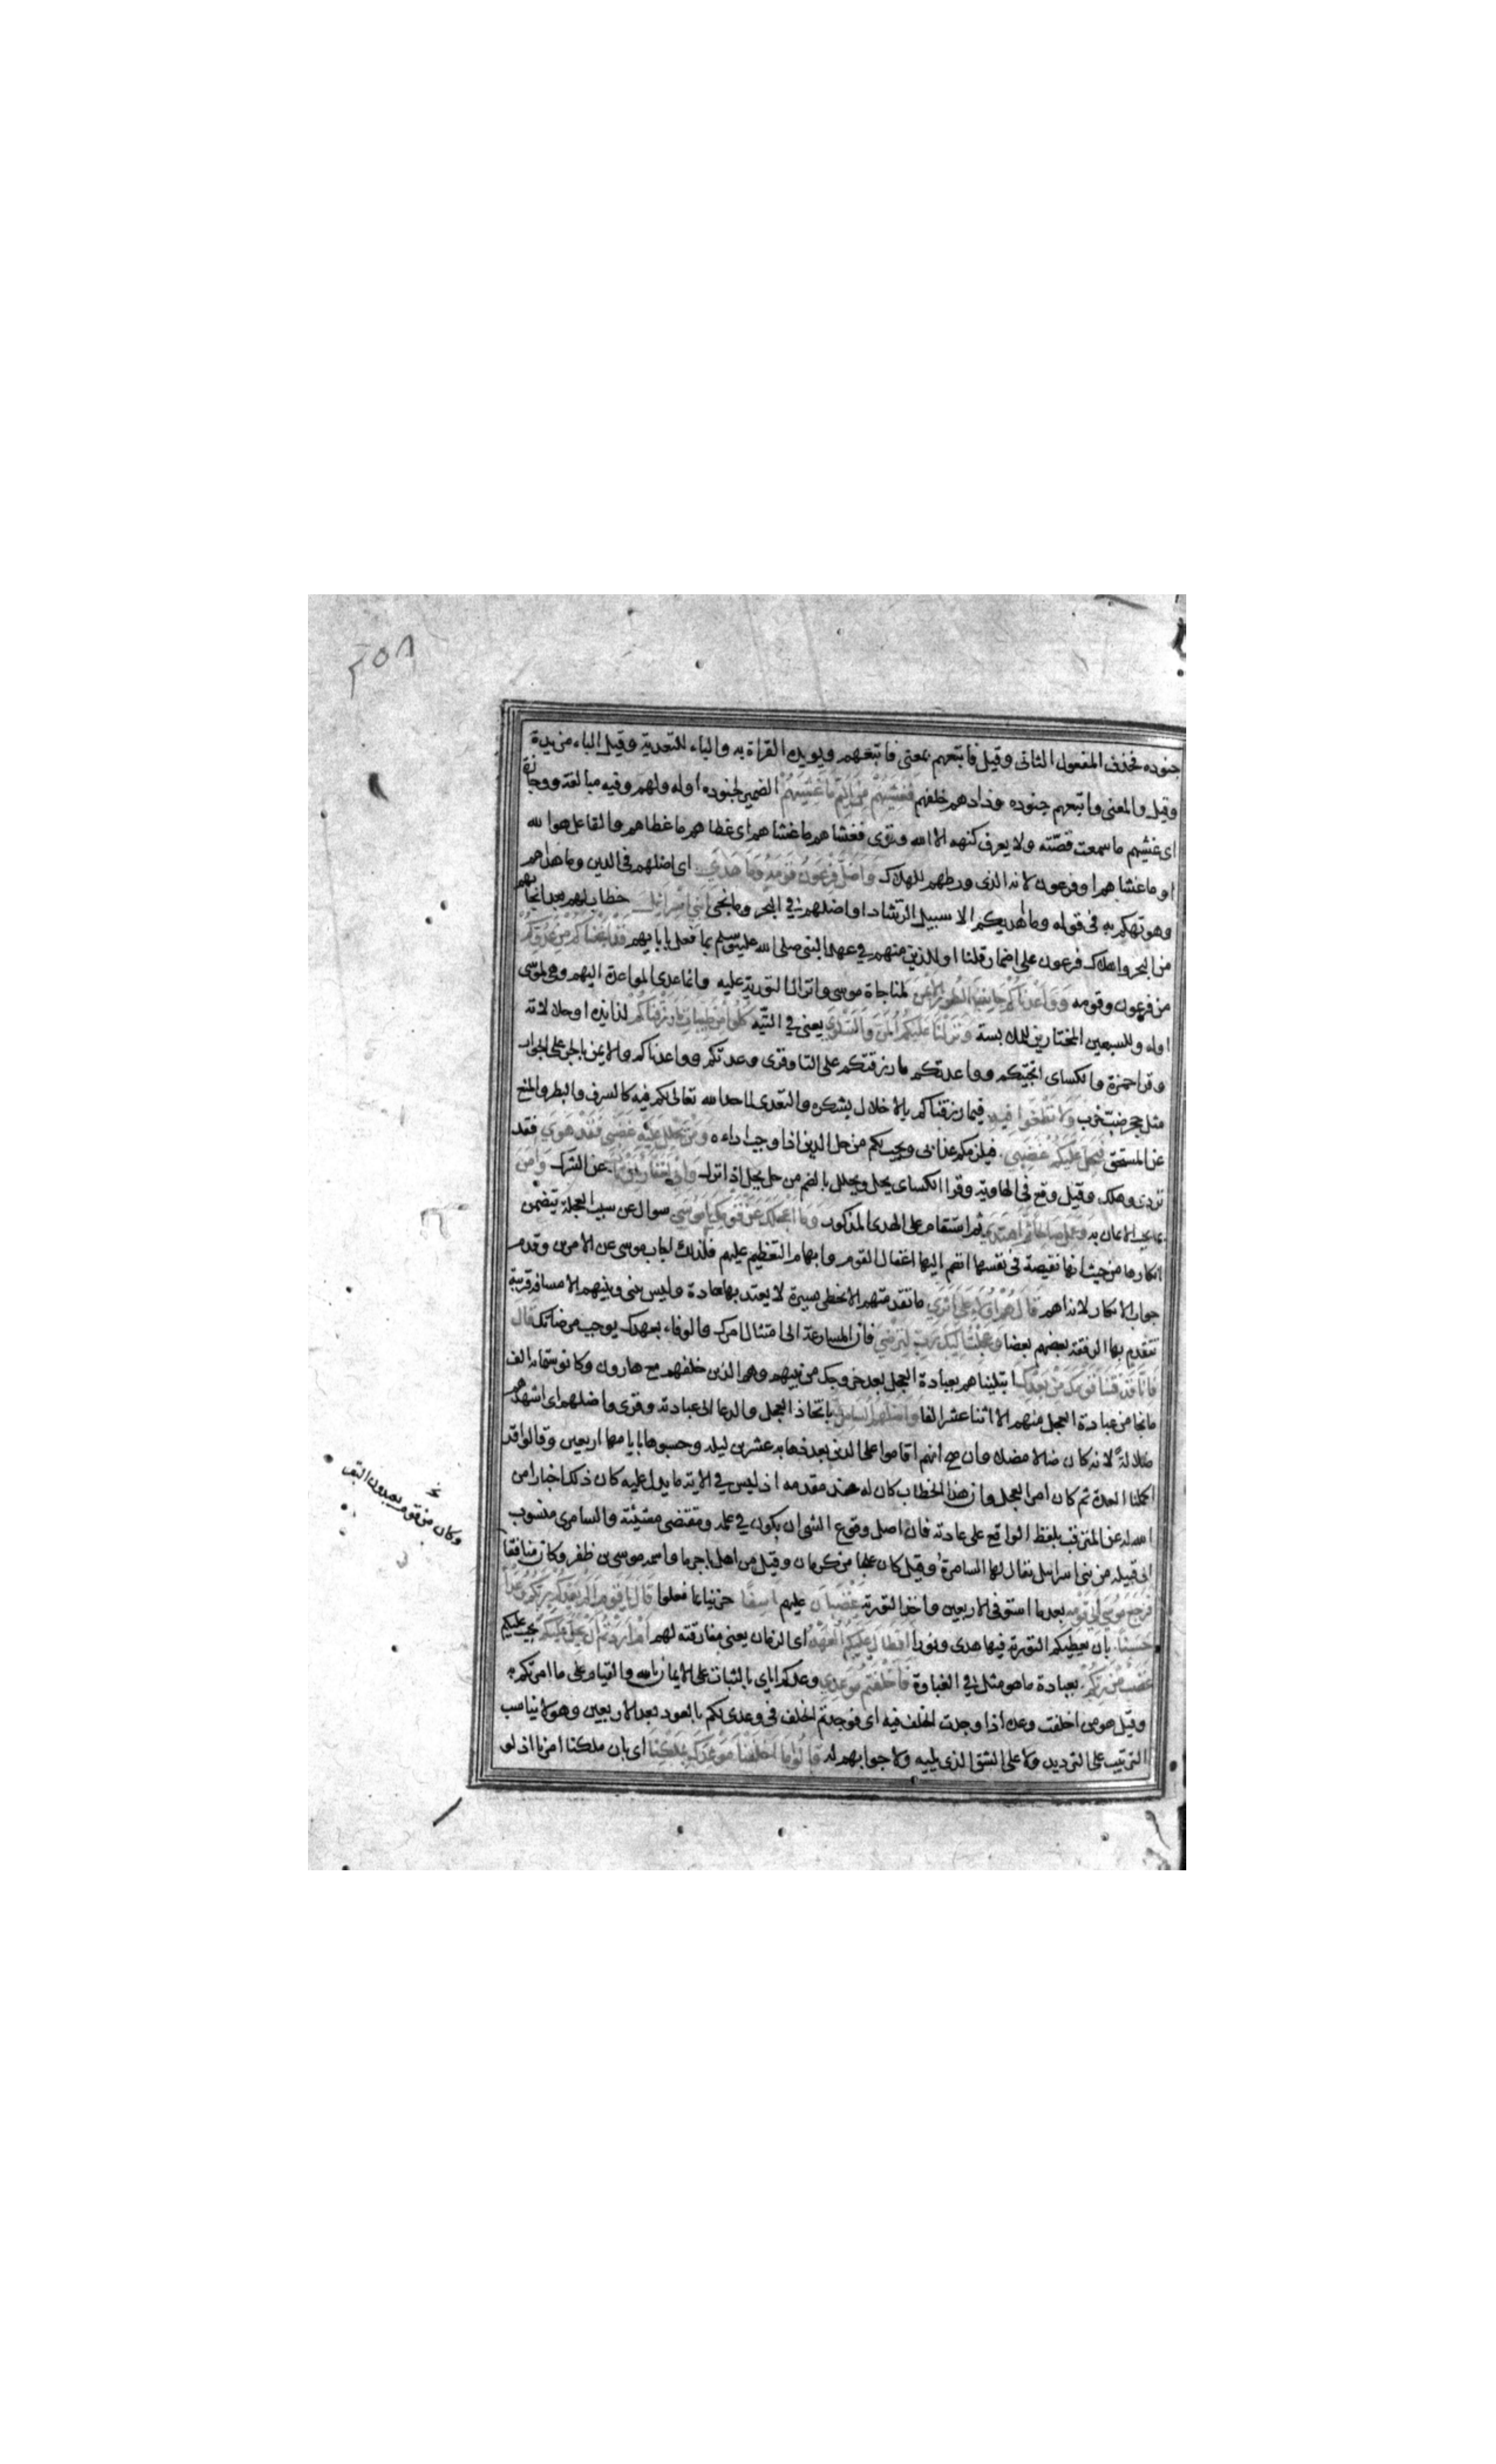 ٢٥٨
جنوده فحذف المفعول الثانى وقيل فاتبعهم بمعنى فاتبعهم ويويده القراة به والباء للتعدية وقيل الباء مزيدة
وقيل والمعنى فاتبعهم جنوده وذادهم خلفهم فَغَشِيَهُمْ مِنَ الْيَمِّ مَا غَشِيَهُمْ الضمير لجنوده او له ولهم وفيه مبالغة ووجازة
اى غشيهم ما سمعت قصّته ولا يعرف كنهه الا الله وقرى فغشاهم ما غشاهم اى غطاهم ما غطاهم والفاعل هو الله
او ما غشاهم او فرعون لانه الذى ورطهم للهلاك وَاَضَلَّ فِرْعَوْنُ قَوْمَهُ وَمَا هَدَى اى اضلهم فى الدين وما هداهم
وهو تهكم به فى قوله وما اهديكم الا سبيل الرّشاد او اضلهم فى البحر وما نجى يَا بَنِي اِسْرَائِلَ خطاب لهم بعد انجائهم
من البحر واهلاك فرعون على اضمار قلنا او للذين منهم فى عهد النبى صلى الله عليه وسلم بما فعل بابايهم قَدْ اَنْجَيْنَاكُمْ مِنْ عَدُوِّكُمْ
من فرعون وقومه وَوَاعَدْنَاكُمْ جَانِبَ الطُّورِ الْاَيْمَنَ لمناجاة موسى وانزال التورية عليه وانما عدى المواعدة اليهم وهى لموسى
او له وللسبعين المختارين للملابسة وَنَزَّلْنَا عَلَيْكُمُ الْمَنَّ وَالسَّلْوَى يعنى فى التّيه كُلُوا مِنْ طَيِّبَاتِ مَا رَزَقْنَاكُمْ لذايذه او حلالاته
وقرا حمزة والكساى انجيتكم وواعدتكم ما رزقتكم على التا وقرى وعدتكم ووعدناكم والايمن بالجر على الجوار
مثل جحر ضب خرب وَلَا تَطْغَوْا فِيهِ فيما رزقناكم بالاخلال بشكره والتعدى لما حد الله تعالى لكم فيه كالسرف والبطر والمنع
عن المستحق فَيَحِلَّ عَلَيْكُمْ غَضَبِي فيلزمكم عذابى ويجب لكم من حل الدين اذا وجب اداءه وَمَنْ يَحْلِلْ عَلَيْهِ غَضَبِي فَقَدْ هَوَى فقد
تردى وهلك وقيل وقع فى الهاوية وقرا الكساى يحل ويحلل بالضم من حل يحل اذا نزل وَاِنِّي لَغَفَّارٌ لِمَنْ تَابَ عن الشرك وَآمَنَ
بما يجب الايمان به وَعَمِلَ صَالِحًا ثُمَّ اهْتَدَى ثم استقام على الهدى المذكور وَمَا اَعْجَلَكَ عَنْ قَوْمِكَ يَا مُوسَى سوال عن سبب العجلة يتضمن
انكارها من حيث انها نقيصة فى نفسها انضم اليها اغفال القوم وابهام التعظيم عليهم فلذلك اجاب موسى عن الامرين وقدم
جواب الانكار لانه اهم قَالَ هُمْ اُولَاءِ عَلَى اَثَرِي ما تقدمتهم الا بخطى يسيرة لا يعتد بها عادة وليس بينى وبينهم الا مسافة قريبة
تتقدم بها الرفقة بعضهم بعضا وَعَجِلْتُ اِلَيْكَ رَبِّ لِتَرْضَى فان المسارعة الى امتثال امرك والوفاء بعهدك يوجب مرضاتك قَالَ
فَاِنَّا قَدْ فَتَنَّا قَوْمَكَ مِنْ بَعْدِكَ ابتليناهم بعبادة العجل بعد خروجك من بينهم وهم الذين خلفهم مع هارون وكانو ستمايه الف
ما نجا من عبادة العجل منهم الا اثنا عشر الفا وَاَضَلَّهُمُ السَّامِرِيُّ باتّخاذ العجل والدعا الى عبادته وقرى واضلهم اى اشدهم
ضلالةً لانه كان ضالا مضلا وان صح انهم اقاموا على الدين بعد ذهابه عشرين ليلة وحسبوها بايامها اربعين وقالوا قد
اكملنا العدة ثم كان امر العجل وان هذا الخطاب كان له عند مقدمه اذ ليس فى الاية ما يدل عليه كان ذلك اخبارا من
الله له عن المترقب بلفظ الواقع على عادته فان اصل وقوع الشى ان يكون فى علمه ومقتضى مشيئته والسامرى منسوب
الى قبيلة من بنى اسرايل يقال لها السامرة وقيل كان علجا من كرمان وقيل من اهل باجرما واسمه موسى بن ظفر وكان منافقا
فَرَجَعَ مُوسَى اِلَى قَوْمِهِ بعد ما استوفى الاربعين واخذ التورية غَضْبَانَ عليهم اَسِفًا حزينا بما فعلوا قَالَ يَا قَوْمِ اَلَمْ يَعِدْكُمْ رَبُّكُمْ وَعْدًا
حَسَنًا بان يعطيكم التورية فيها هدى ونورا اَفَطَالَ عَلَيْكُمُ الْعَهْدُ اى الزمان يعنى مفارقته لهم اَمْ اَرَدْتُمْ اَنْ يَحِلَّ عَلَيْكُمْ يجب عليكم
غَضَبٌ مِنْ رَبِّكُمْ بعبادة ما هو مثل فى الغباوة فَاَخْلَفْتُمْ مَوْعِدِي وعدكم اياى بالثبات على الايمان بالله والقيام على ما امرتكم به
وقيل هو من اخلفت وعده اذا وجدت الخلف فيه اى فوجدتم الخلف فى وعدى لكم بالعود بعد الاربعين وهو لا يناسب
الترتيب على الترديد ولا على الشق الذى يليه ولا جوابهم له قَالُوا مَا اَخْلَفْنَا مَوْعِدَكَ بِمَلْكِنَا اى بان ملكنا امرنا اذ لو
وكان من قوم يعبدون البقر